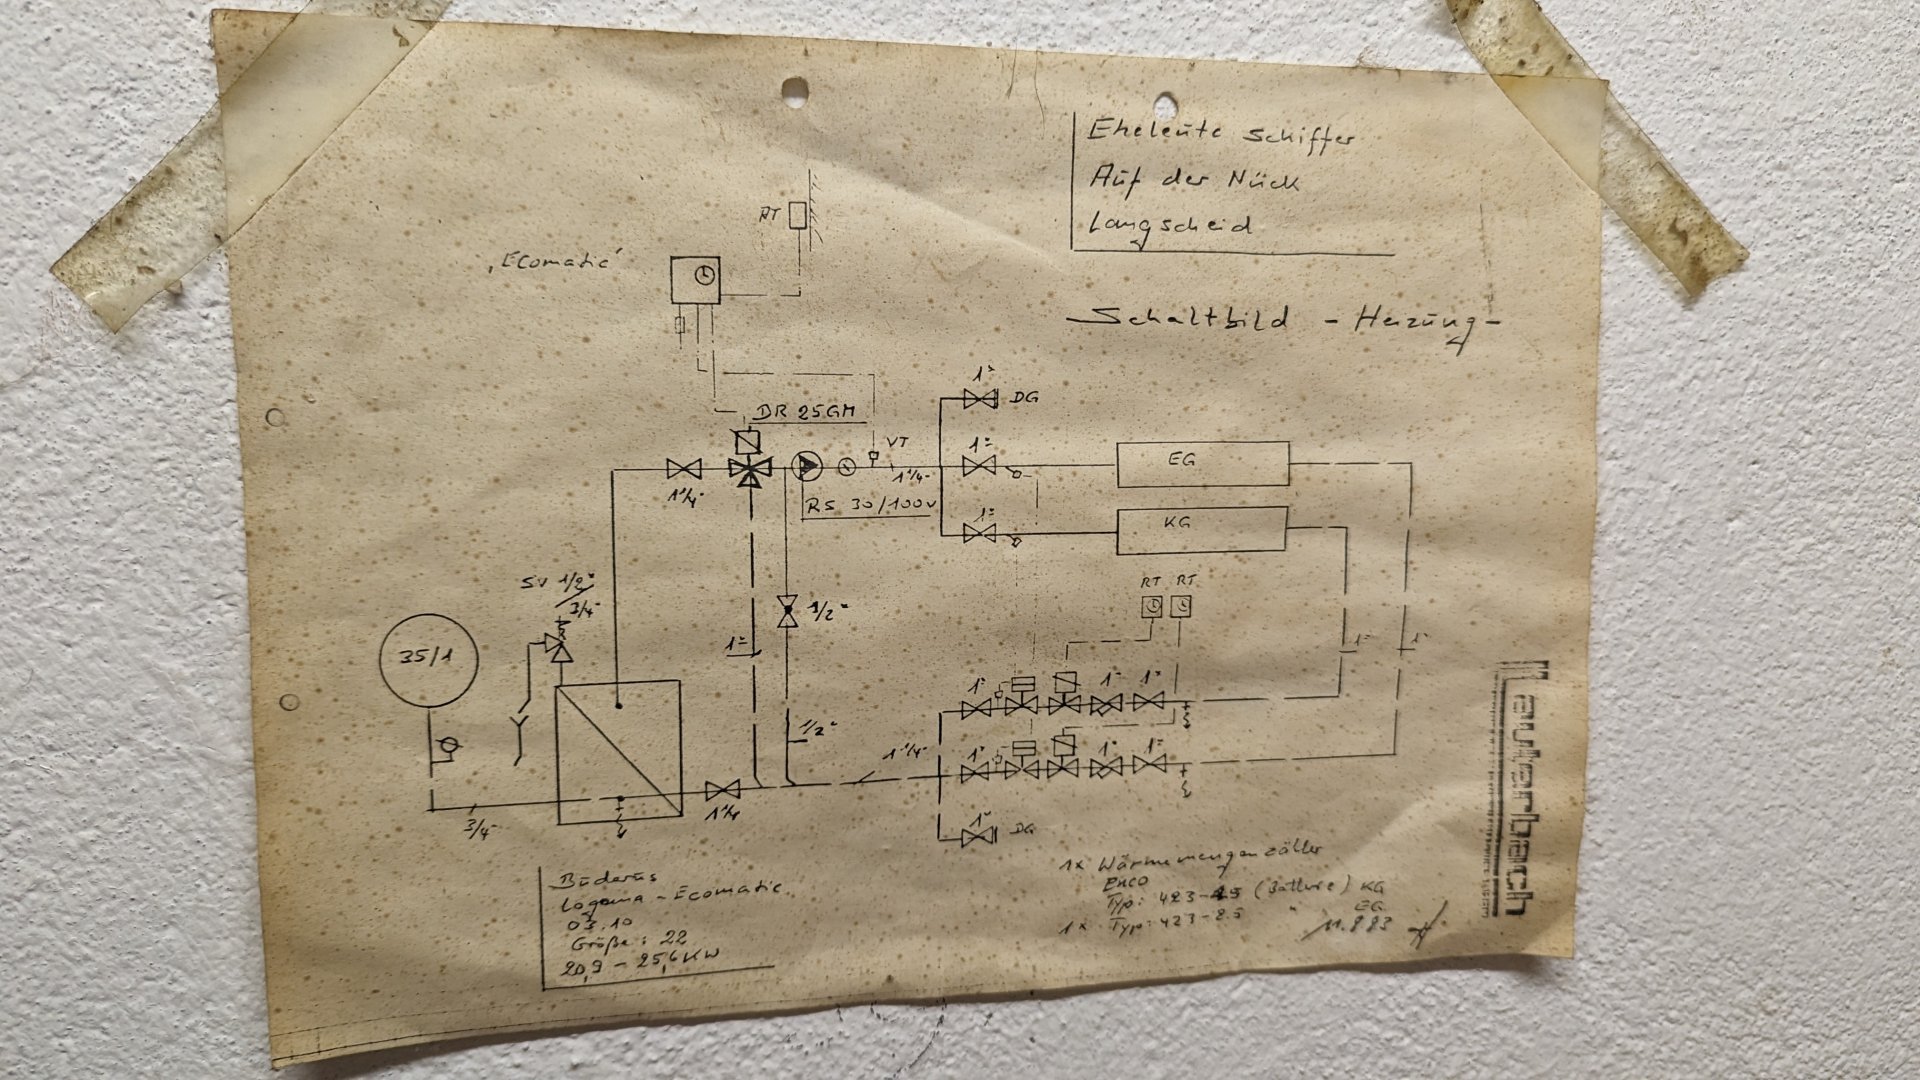 Eheleute Schiffer
Auf der Nück
Langscheid
Schaltbild - Heizung -
AT
"Ecomatic"
DR 25GM
VT
1"
DG
1"
EG
1 1/4"
1 1/4"
RS 30/100V
1"
KG
SV 1/2"
3/4"
35/1
1/2"
RT RT
1"
1"
1"
1" 1" 1"
1/2"
1 1/4"
1" 1" 1"
3/4"
1 1/4
1" DG
Lauterbach
Buderus
Logana - Ecomatic
03.10
Größe: 22
20,9 - 25,6 KW
1x Wärmemengenzähler
Typ: 423- (Batterie) KG
EG
1x Typ: 423-2.5 "
11.8 83